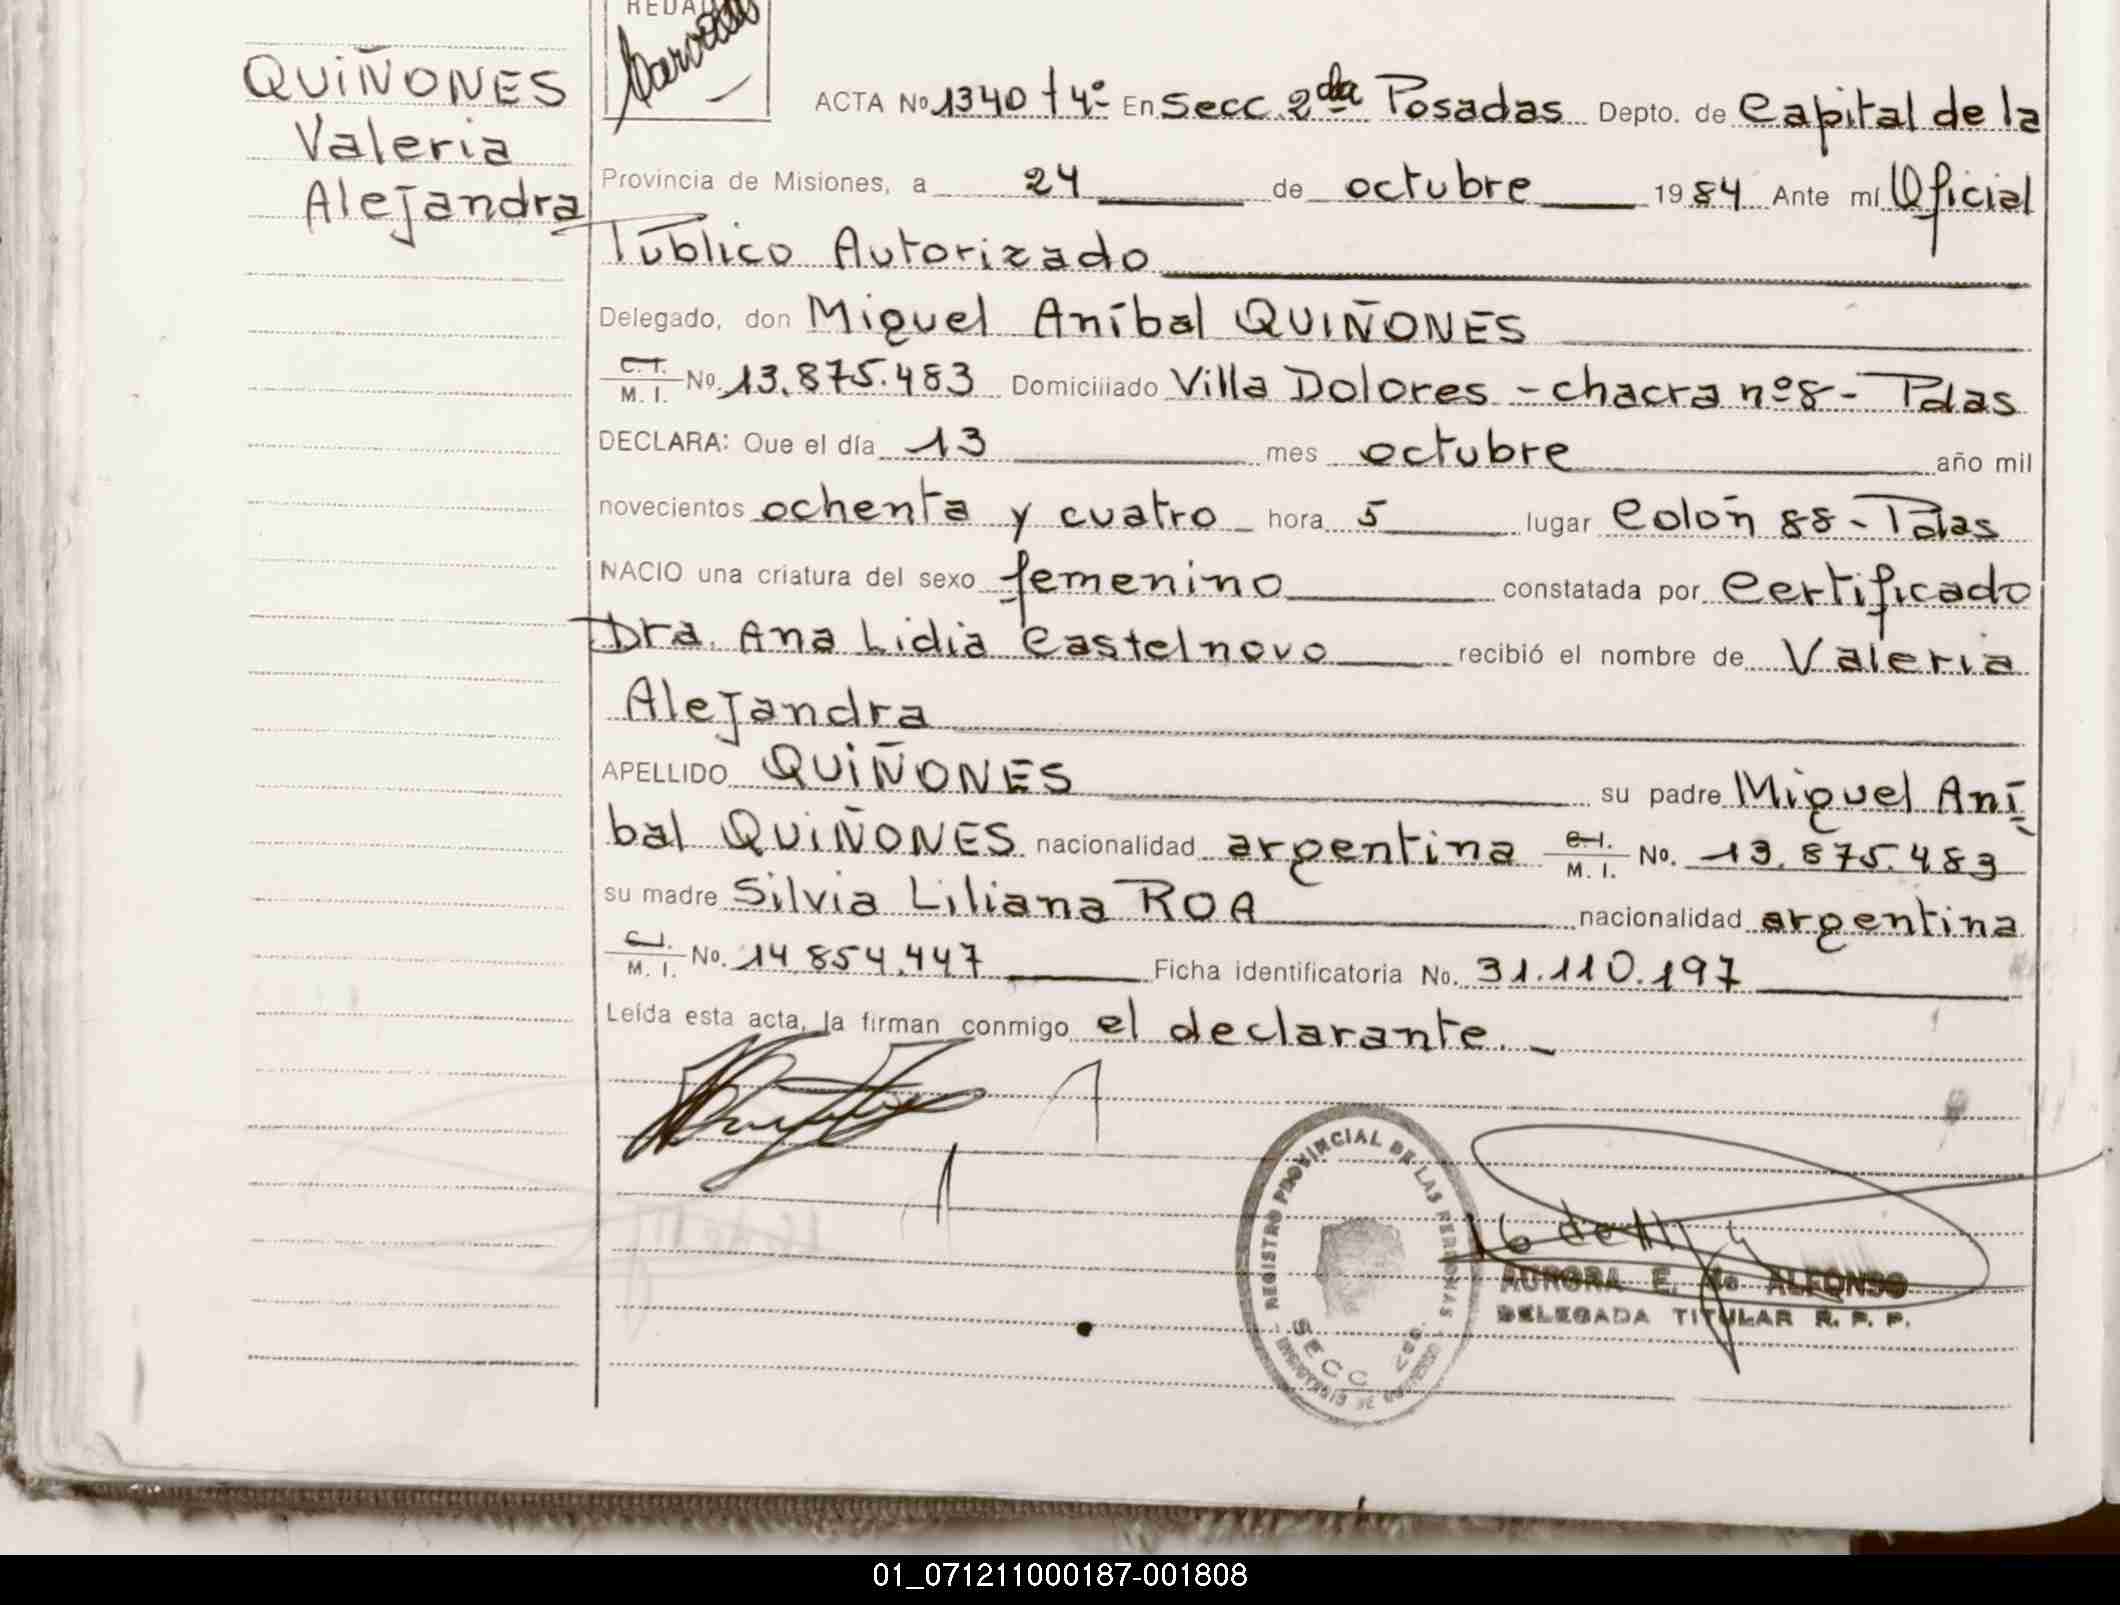 QUIÑONES
Valeria
Alejandra
ACTA No 1340 t 4º En Secc. 2da Posadas Depto. de Capital de la
Provincia de Misiones, a 24 de octubre 1984 Ante mí Oficial
Público Autorizado
Delegado, don Miguel Aníbal QUIÑONES
C.I. M. I. No. 13.875.483 Domiciliado Villa Dolores - chacra nº 8 - Pdas
DECLARA: Que el día 13 mes octubre año mil
novecientos ochenta y cuatro hora 5 lugar Colón 88 - Pdas
NACIO una criatura del sexo femenino constatada por Certificado
Dra. Ana Lidia Castelnovo recibió el nombre de Valeria
Alejandra
APELLIDO QUIÑONES su padre Miguel Aní
bal QUIÑONES nacionalidad argentina C.I. M. I. No. 13.875.483
su madre Silvia Liliana ROA nacionalidad argentina
C.I. M. I. No. 14.854.447 Ficha identificatoria No. 31.110.197
Leída esta acta, la firman conmigo el declarante. -
REGISTRO PROVINCIAL DE LAS PERSONAS
SECC
AURORA E. de ALFONSO
DELEGADA TITULAR R. P. P.
01_071211000187-001808